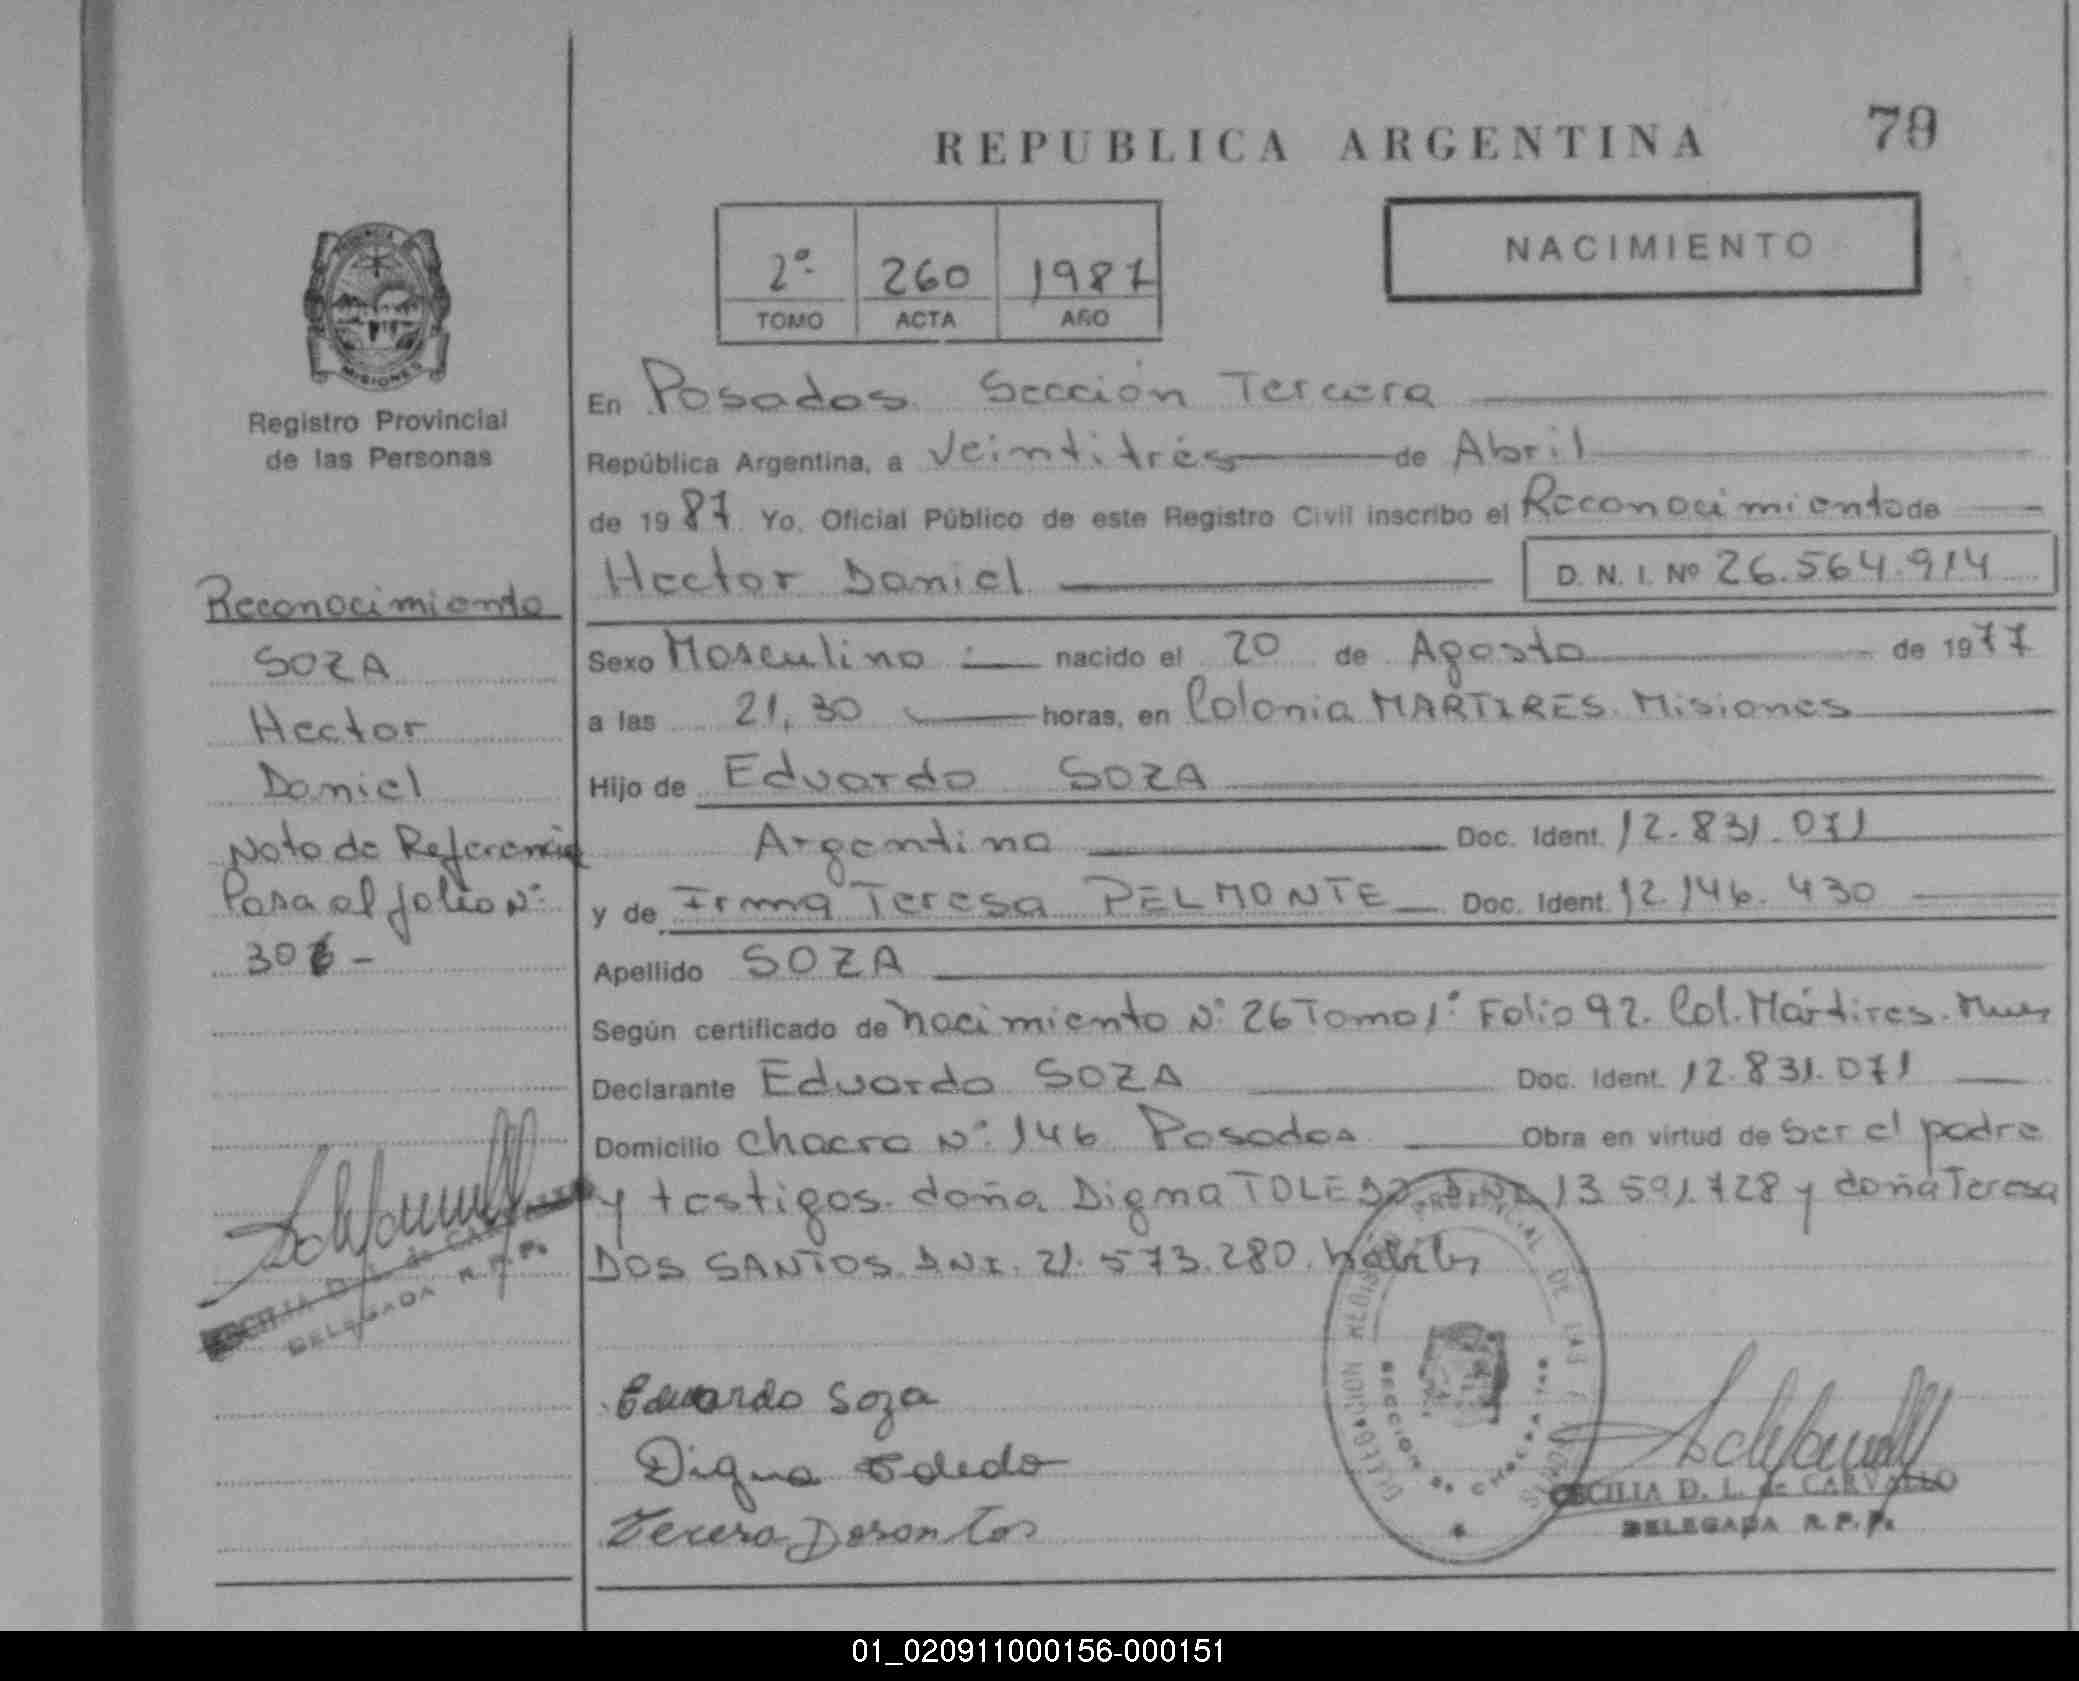 REPUBLICA ARGENTINA
79
NACIMIENTO
2º 260 1987
TOMO ACTA AÑO
PROVINCIA
MISIONES
Registro Provincial
de las Personas
Reconocimiento
SOZA
Hector
Daniel
Nota de Referencia
Pasa al folio Nº
306 -
CECILIA D. L. de CARVALLO
DELEGADA R. P. P.
En Posadas Sección Tercera
República Argentina, a Veintitrés de Abril
de 1987 Yo, Oficial Público de este Registro Civil inscribo el Reconocimiento de
Hector Daniel D. N. I. Nº 26.564.914
Sexo Masculino nacido el 20 de Agosto de 1977
a las 21,30 horas, en Colonia MARTIRES. Misiones
Hijo de Eduardo SOZA
Argentino Doc. Ident. 12.831.071
y de Irma Teresa PELMONTE Doc. Ident. 12.146.430
Apellido SOZA
Según certificado de Nacimiento Nº 26 Tomo 1º Folio 92. Col. Mártires.
Declarante Eduardo SOZA Doc. Ident. 12.831.071
Domicilio Chacra Nº 146 Posadas Obra en virtud de ser el padre
y testigos. doña Digma TOLEDO DNI 13.591.728 y doña Teresa
DOS SANTOS. DNI. 21.573.280. hábiles
Eduardo Soza
Digna Toledo
Teresa Dosantos
DELEGACION REGISTRO PROVINCIAL DE LAS PERSONAS
SECCION
CECILIA D. L. de CARVALLO
DELEGADA R. P. P.
01_020911000156-000151